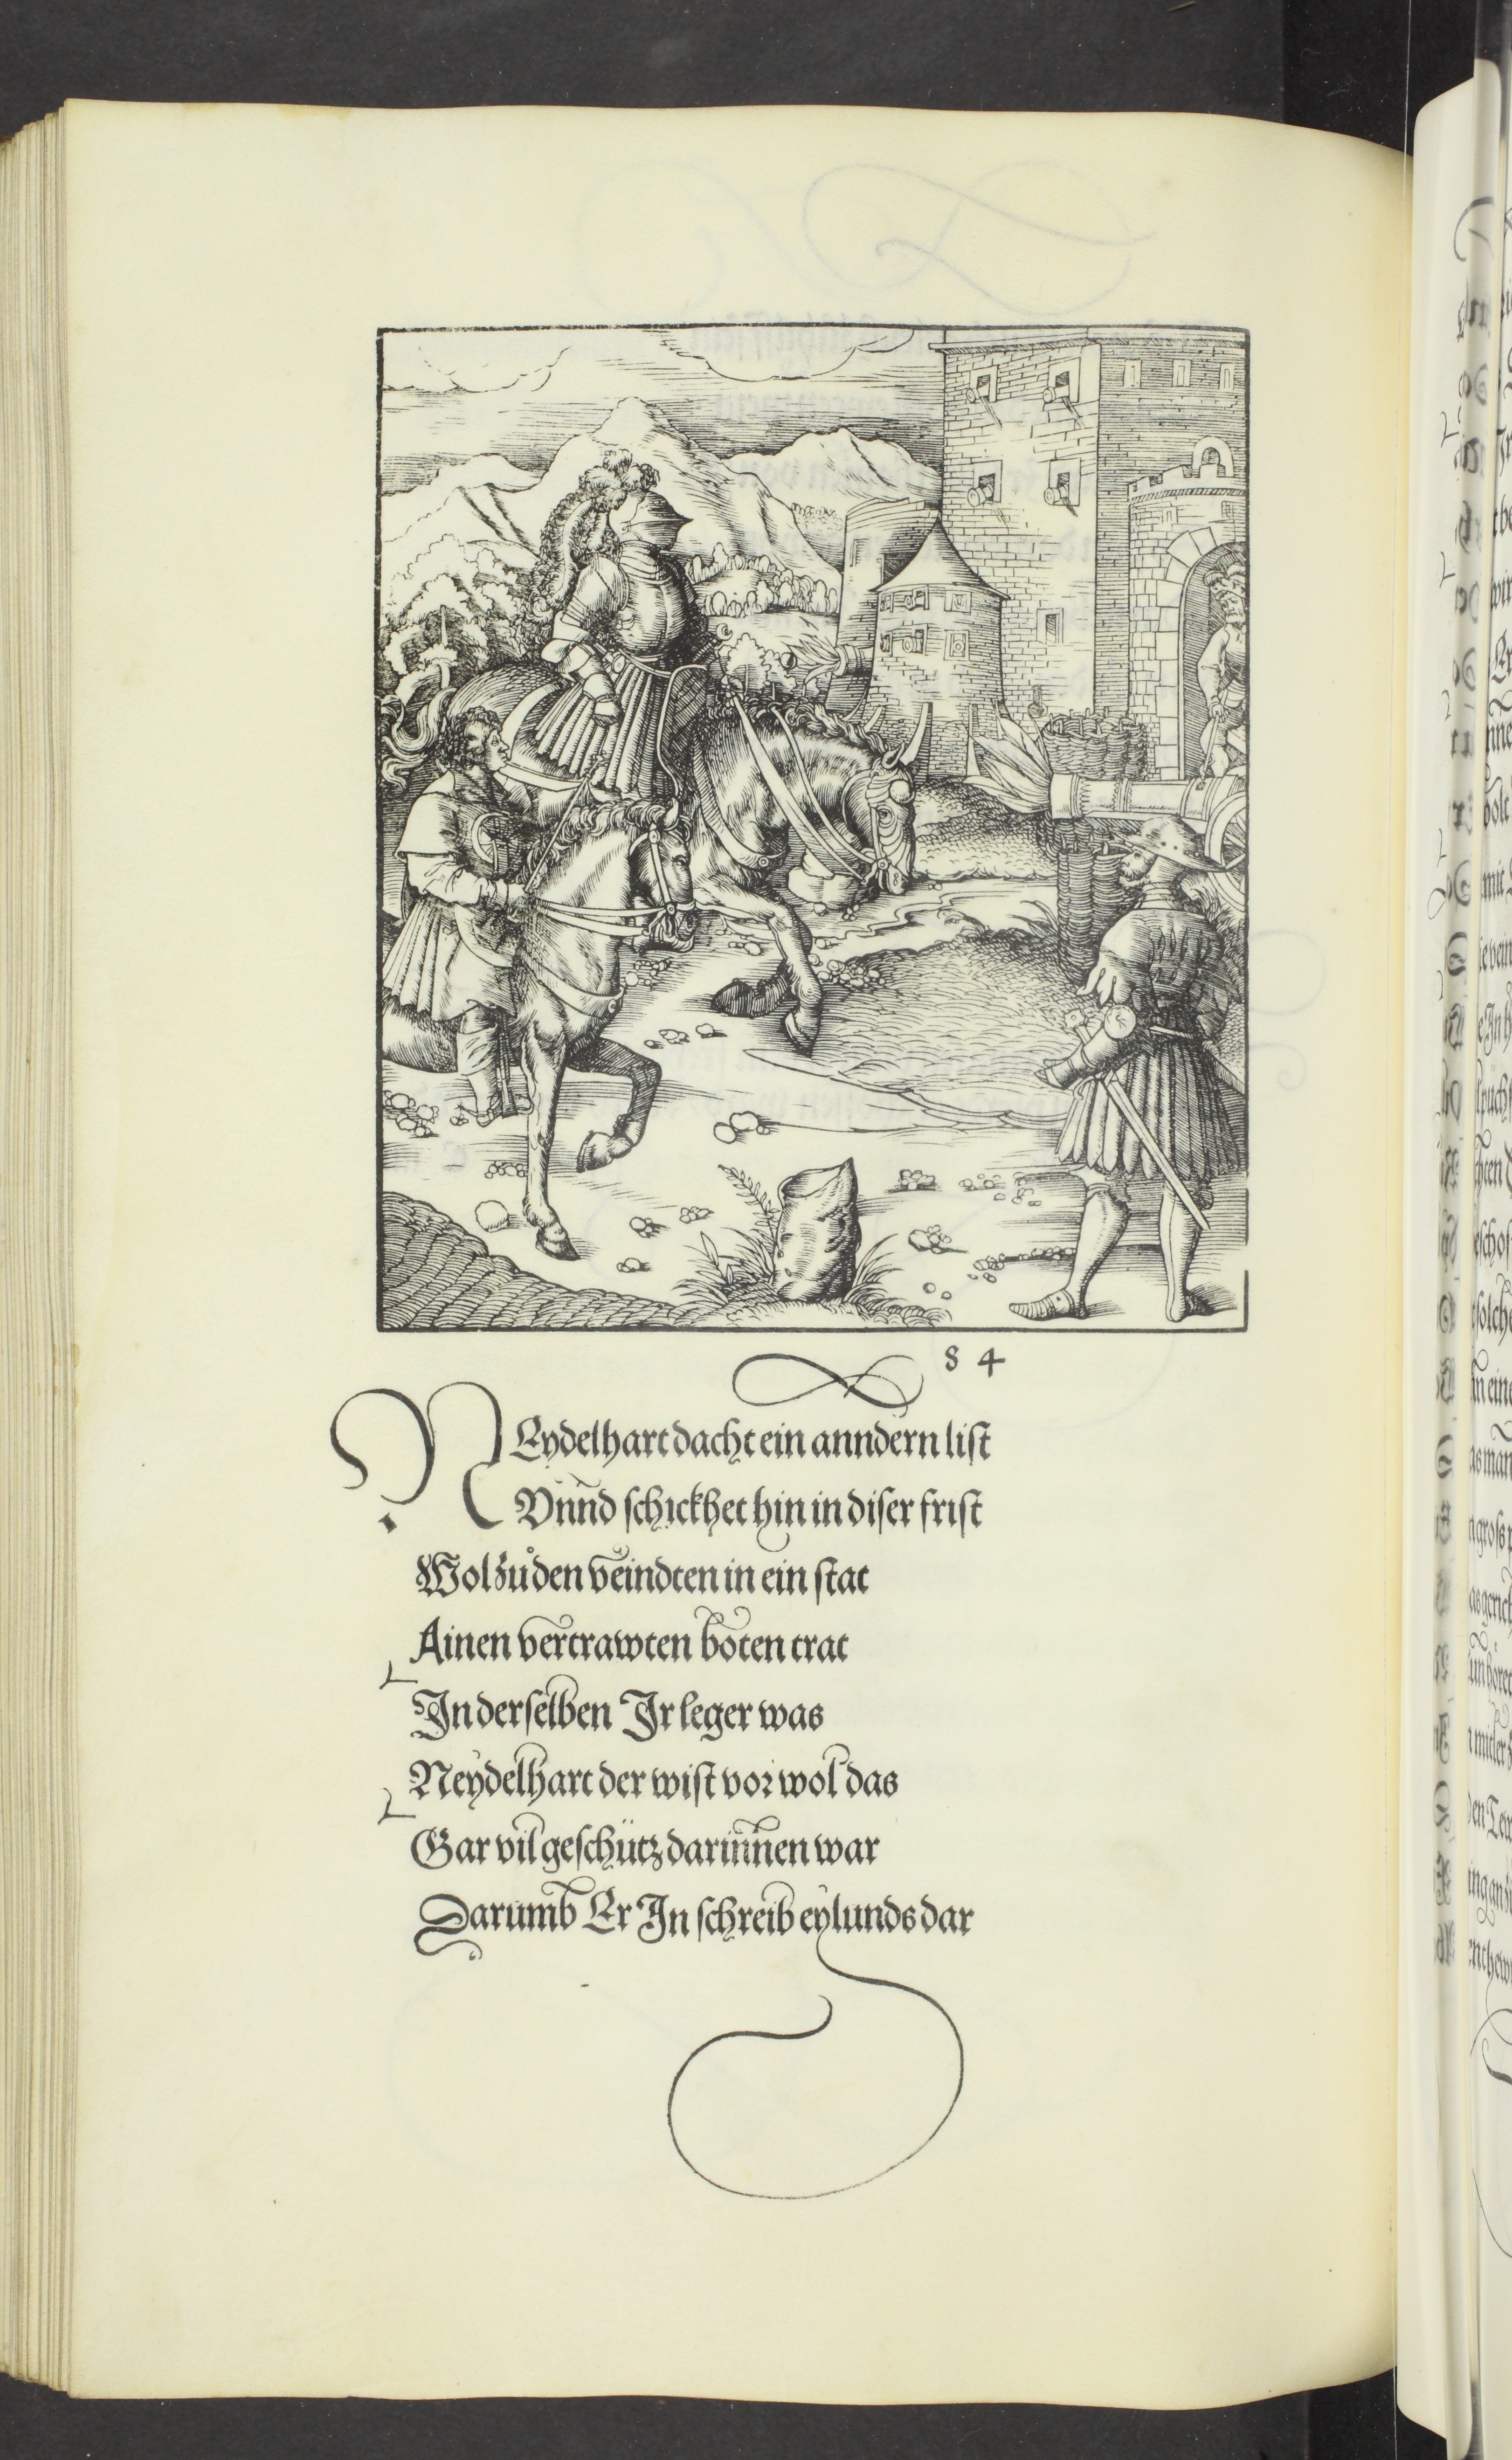 84
NEydelhart dacht ein anndern list
Vnnd schickhet hin in diser frist
Wol zů den veindten in ein stat
Ainen vertrawten boten trat
In derselben Ir leger was
Neydelhart der wist vor wol das
Gar vil geschütz darinnen war
Darumb Er In schreib eylunds dar